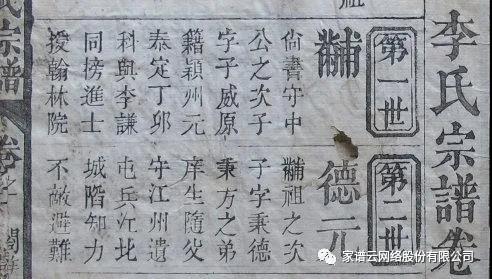 李氏宗譜
祖
第一世
黼
尙書守中
公之次子
字子威原
籍穎州元
泰定丁卯
科與李謙
同榜進士
授翰林院
第二世
德元
黼祖之次
子字秉德
秉方之弟
庠生隨父
守江州遺
屯兵江北
城陷知力
不敵避難
氏宗譜
卷之
家谱云网络股份有限公司